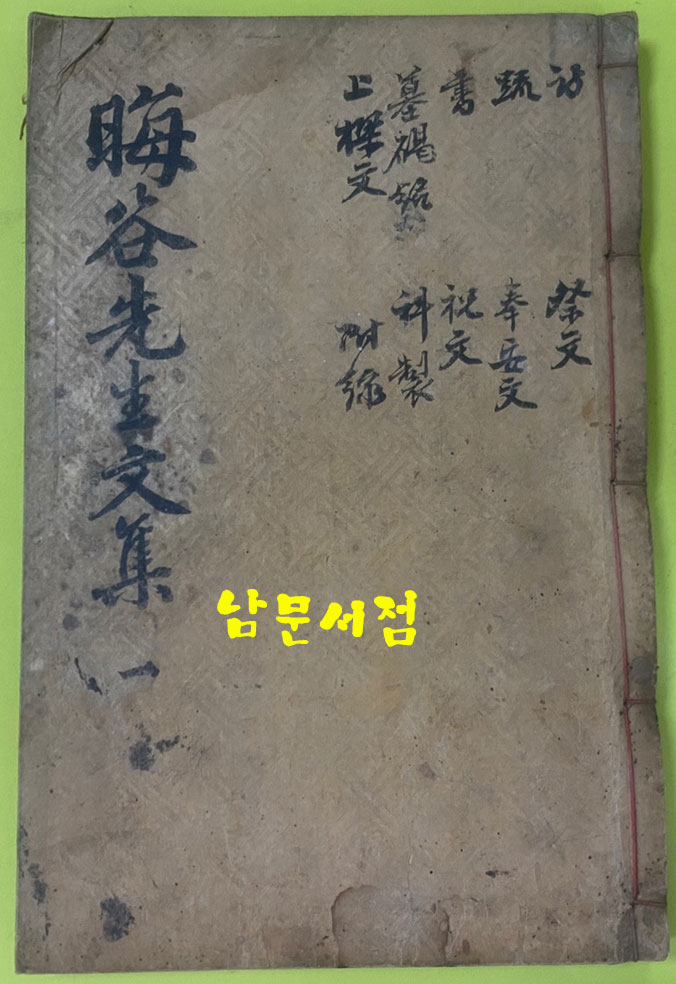 晦谷先生文集 一
詩
疏
書
墓碣銘
上樑文
祭文
奉安文
祝文
科製
附錄
남문서점